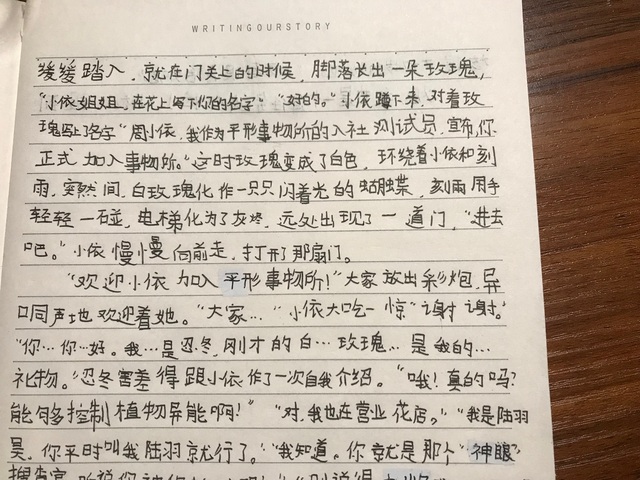 WRITINGOURSTORY
缓缓踏入，就在门关上的时候，脚落长出一朵玫瑰，
“小依姐姐，在花上写下你的名字”“好的。”小依蹲下来，对着玫
瑰写上名字“周小依，我作为平形事物所的入社测试员，宣布，你
正式加入事物所。”这时玫瑰变成了白色，环绕着小依和刻
雨，突然间，白玫瑰化作一只只闪着光的蝴蝶，刻雨用手
轻轻一碰，电梯化为了灰烬，远处出现了一道门，“进去
吧。”小依慢慢向前走，打开了那扇门。
“欢迎小依加入平形事物所！”大家放出彩炮，异
口同声地欢迎着她。“大家…“小依大吃一惊”谢谢。”
“你…你…好。我…是忍冬，刚才的白…玫瑰…是我的…
礼物。”忍冬害羞得跟小依作了一次自我介绍。“哦！真的吗？
能够多控制植物异能啊！”“对，我也在营业花店。”“我是陆羽
吴，你平时叫我陆羽就行了。”“我知道。你就是那个“神眼”